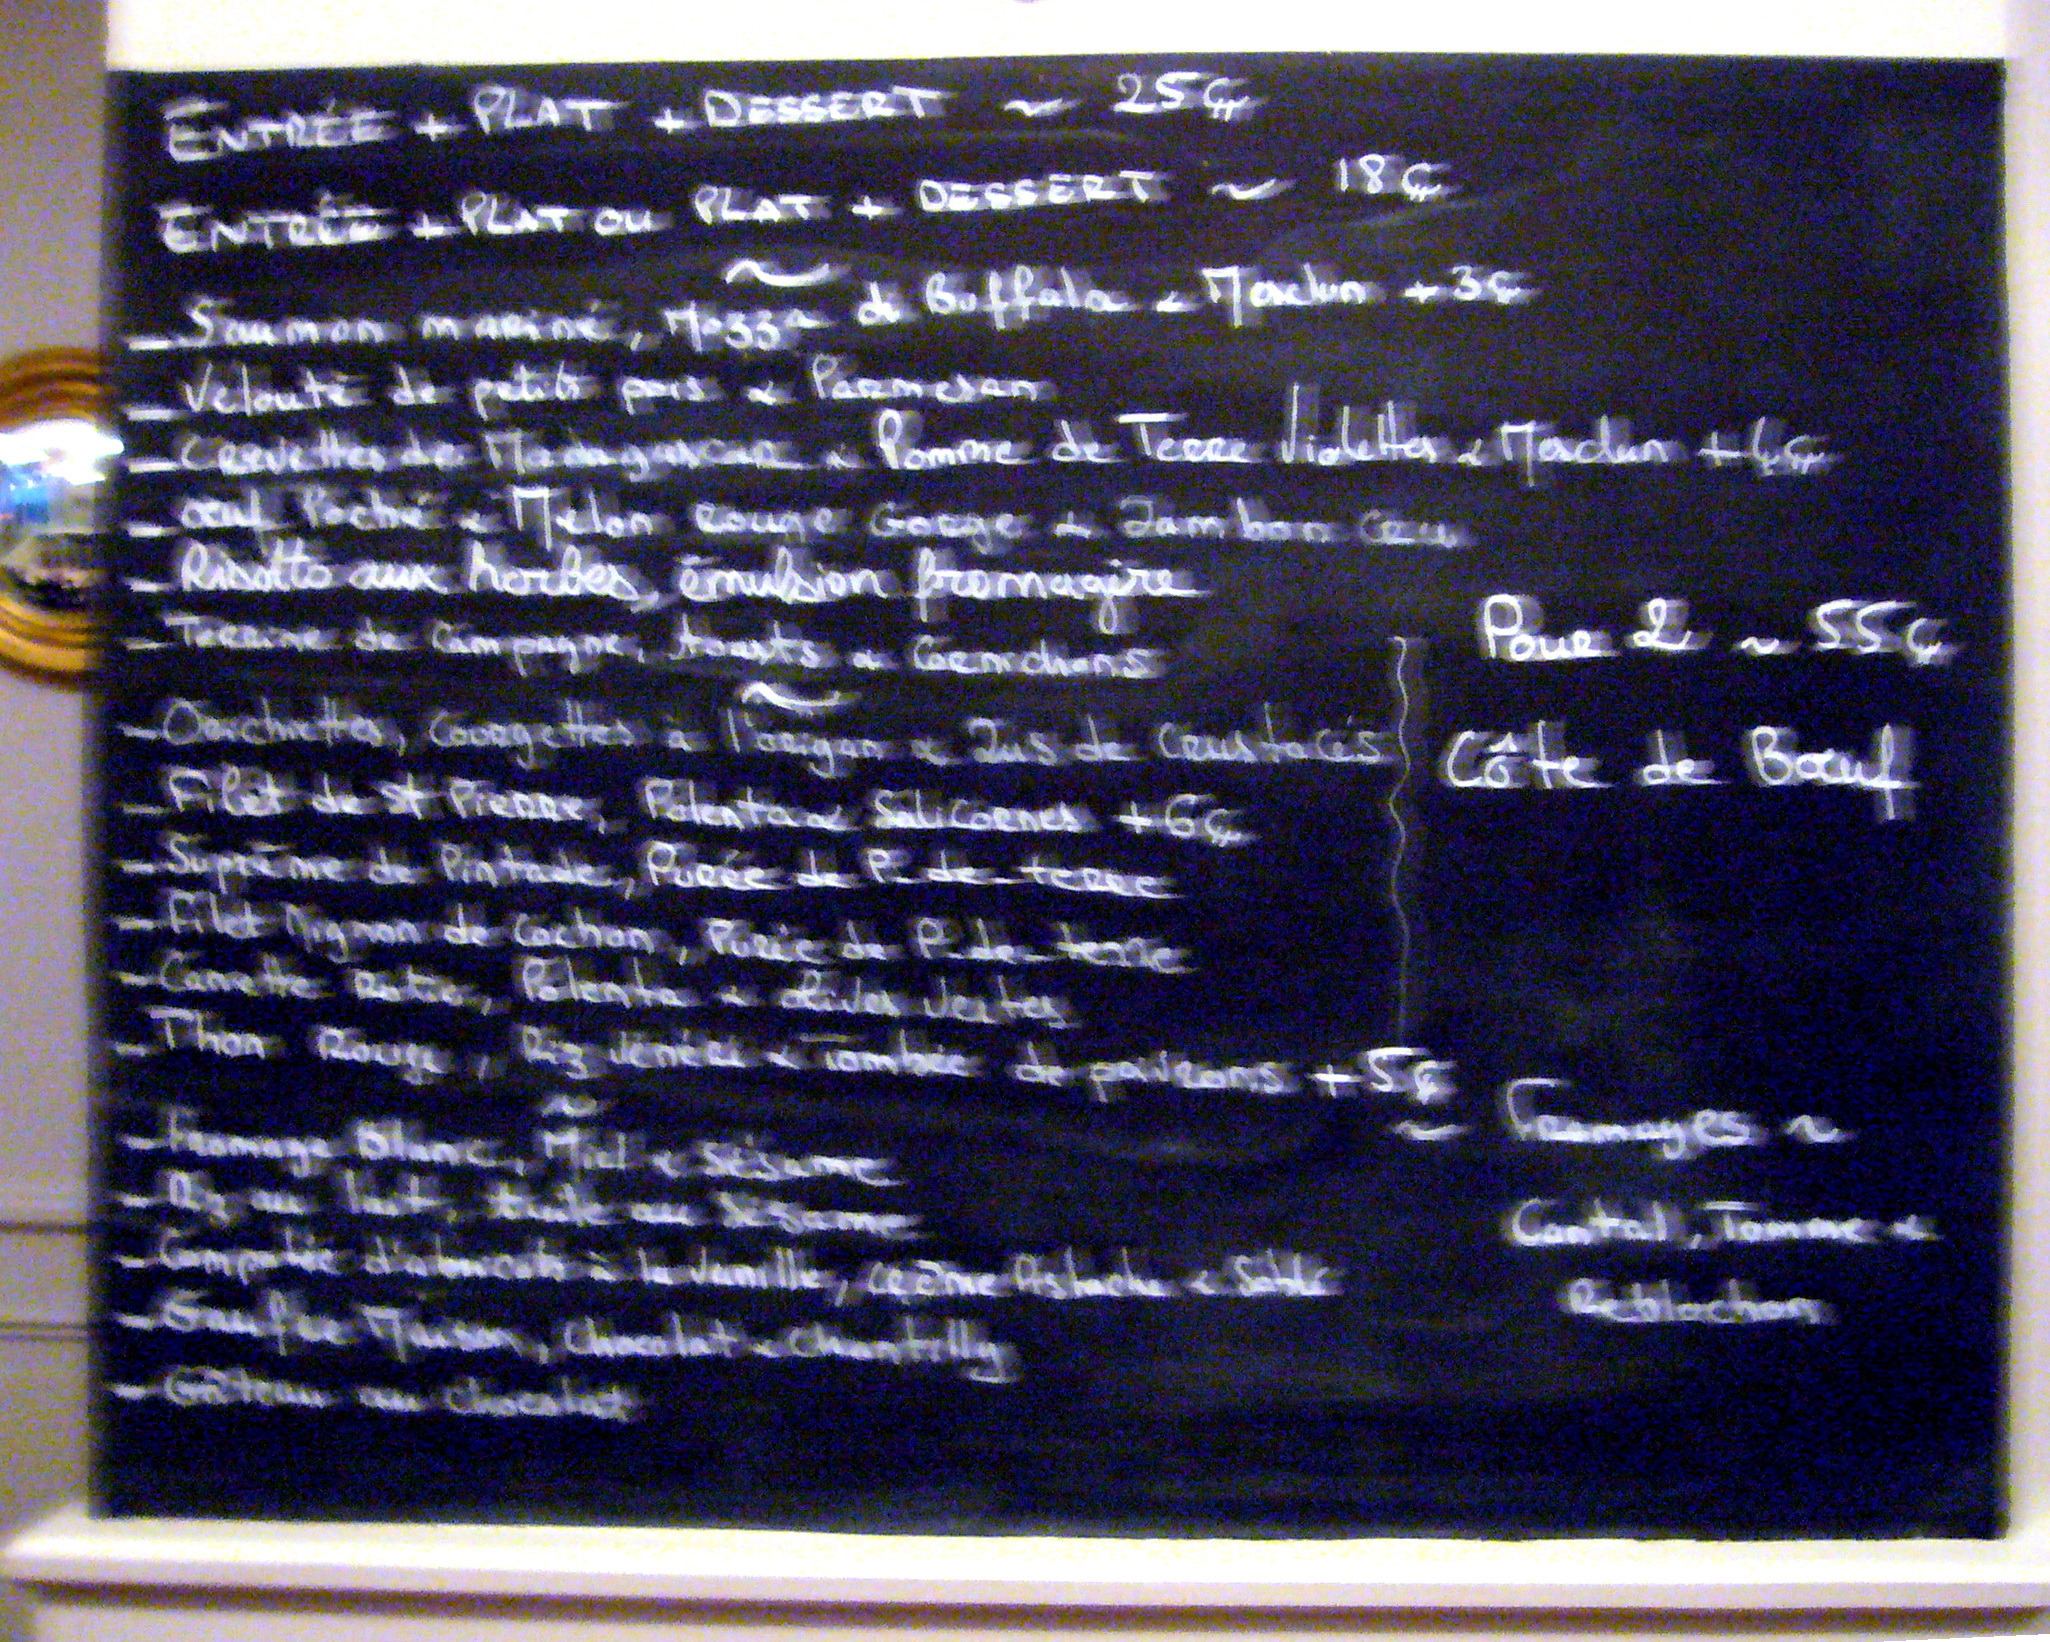 ENTRÉE + PLAT + DESSERT ~ 25€
ENTRÉE + PLAT OU PLAT + DESSERT ~ 18€
~
- Saumon mariné, Mozza di Buffala & Mesclun +3€
- Velouté de petits pois & Parmesan
- Crevettes de Madagascar & Pomme de Terre Violettes & Mesclun +4€
- œuf Poché & Melon rouge Gorge & Jambon cru
- Risotto aux herbes, émulsion fromagère
- Terrine de Campagne, toasts & Cornichons
~
- Orechiettes, Courgettes à l'origan & Jus de Crustacés
- Filet de St Pierre, Polenta & Salicornes +6€
- Suprême de Pintade, Purée de P. de terre
- Filet Mignon de Cochon, Purée de P. de terre
- Canette Rotie, Polenta & Olives Vertes
- Thon Rouge, Riz Vénéré & Tombée de poivrons +5€
~
- Fromage Blanc, Miel & Sésame
- Riz au lait, tuile au Sézame
- Compotée d'abricots à la Vanille, crème Pistache & Sablé
- Gaufre Maison, Chocolat & Chantilly
- Gâteau au chocolat
Pour 2 ~ 55€
Côte de Bœuf
~ Fromages ~
Cantal, Tomme &
Reblochon